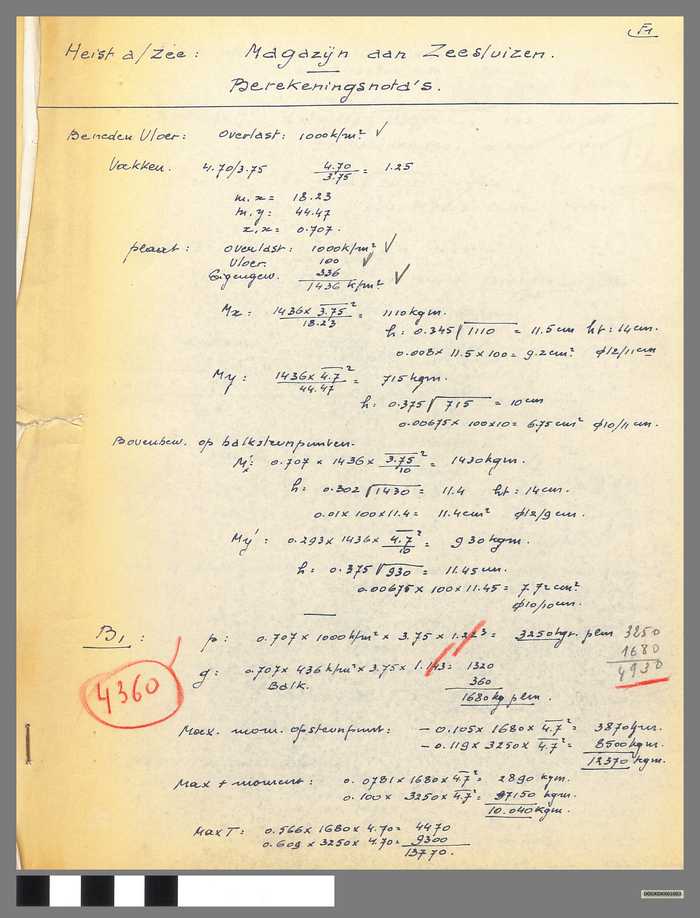 F1
Heist a/Zee: Magazijn aan Zeesluizen.
Berekeningsnota's.
Beneden Vloer: Overlast: 1000k/m² ✓
Vakken. 4.70/3.75 4.70/3.75 = 1.25
m.x = 18.23
m.y: 44.47
x.x = 0.707.
plaat: Overlast: 1000k/m² ✓
Vloer. 100 ✓
Eigengew. 336
1436 k/m² ✓
Mx: 1436 x 3.75²/18.23 = 1110kgm.
h: 0.345√1110 = 11.5cm ht: 14cm.
0.008 x 11.5 x 100 = 9.2cm² φ12/11cm
My: 1436 x 4.7²/44.47 = 715kgm.
h: 0.375√715 = 10cm
0.00675 x 100x10 = 6.75cm² φ10/11cm.
Bovenbew. op balksteunpunten.
Mx': 0.707 x 1436 x 3.75²/10 = 1430kgm.
h: 0.302√1430 = 11.4 ht = 14cm.
0.01 x 100 x 11.4 = 11.4cm² φ12/9cm.
My': 0.293 x 1436 x 4.7²/10 = 930kgm.
h: 0.375√930 = 11.45cm.
0.00675 x 100 x 11.45 = 7.72cm²
φ10/10cm.
B1: p: 0.707 x 1000k/m² x 3.75 x 1.223 = 3250kgr. plm 3250
g: 0.707 x 436k/m² x 3.75 x 1.143 = 1320 1680
Balk. 360 4930
1680kg plm.
4360
Max. mom. op steunpunt: - 0.105 x 1680 x 4.7² = 3870kgm.
- 0.119 x 3250 x 4.7² = 8500kgm.
12370 kgm.
Max + moment: 0.0781 x 1680 x 4.7² = 2890 kgm.
0.100 x 3250 x 4.7² = 7150 kgm.
10.040kgm.
Max T: 0.566 x 1680 x 4.70 = 4470
0.609 x 3250 x 4.70 = 9300
13770.